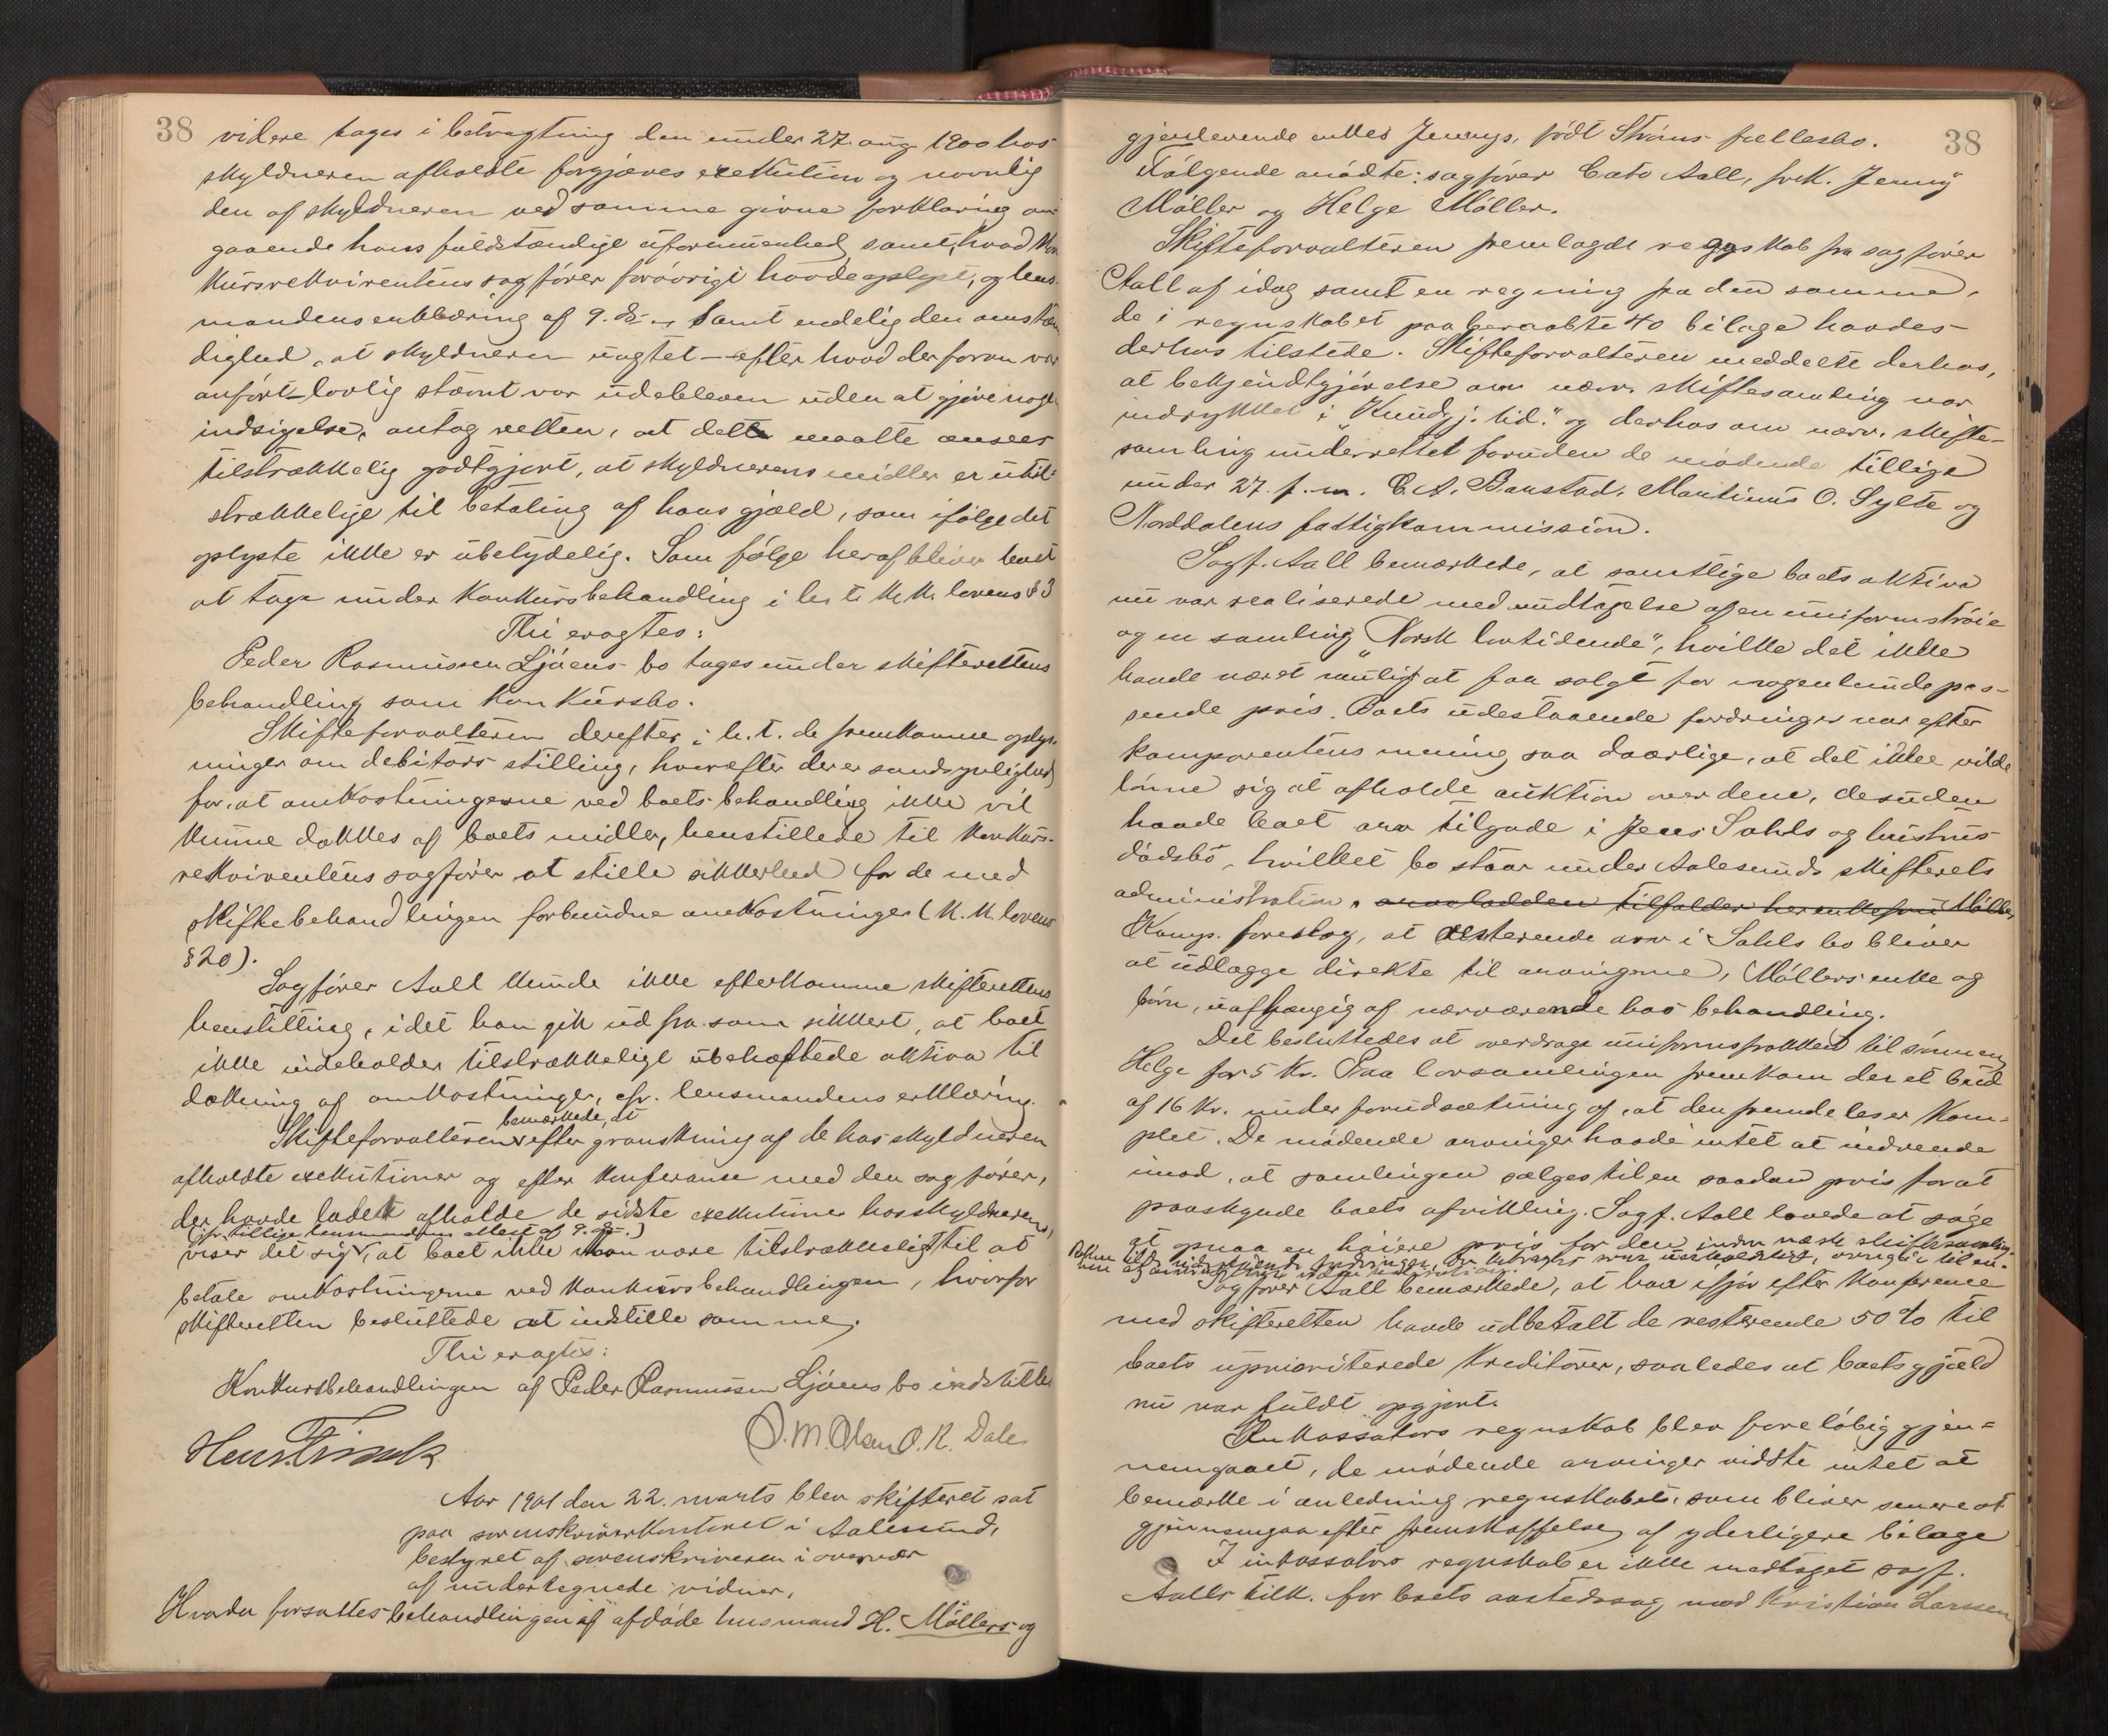 38
videre tages i betragtning den under 27. aug. 1900 hos
skyldneren afholdte forgjæves exekution og navnlig
den af skyldneren ved samme givne forklaring an-
gaaende hans fuldstændige uformuenhed, samt, hvad kon
kursrekvirentens sagfører forøvrigt havde oplyst, og lens-
mandens erklæring af 9. ds. samt endelig den omstæn
dighed, at skyldneren uagtet – efter hvad der foran var
anført – lovlig stævnt var udebleven uden at gjøre nogen
indsigelse, antog retten, at dette maatte ansees
tilstrækkelig godtgjort, at skyldnerens midler er util-
strækkelige til betaling af hans gjæld, som ifølge det
oplyste ikke er ubetydelig. Som følge heraf bliver boet
at tage under konkursbehandling i h. t. k.k. lovens § 3
Thi eragtes:
Peder Rasmussen Ljøens bo tages under skifterettens
behandling som konkursbo.
Skifteforvalteren derefter i h. t. de fremkomne oplys-
ninger om debitors stilling, hvorefter der er sandsynlighed
for, at omkostningerne ved boets behandling ikke vil
kunne dækkes af boets midler, henstillede til konkurs-
rekvirentens sagfører at stille sikkerhed for de med
skiftebehandlingen forbundne omkostninger (k.k. lovens
§ 20).
Sagfører Aall kunde ikke efterkomme skifterettens
henstilling, idet han gik ud fra som sikkert, at boet
ikke indeholder tilstrækkelige ubehæftede aktiva til
dækning af omkostninger, cfr. lensmandens erklæring.
bemærkede, at
Skifteforvalteren efter granskning af de hos skyldneren
afholdte exekutioner og efter konferanse med den sagfører,
der havde ladet afholde de sidste exekutioner hos skyldneren,
(jfr. tillige lensmandens attest af 9. ds.)
viser det sig, at boet ikke kan være tilstrækkeligt til at
betale omkostningerne ved konkursbehandlingen, hvorfor
skifteretten besluttede at indstille samme.
Thi eragtes:
Konkursbehandlingen af Peder Rasmussen Ljøens bo indstilles
O. M. Olsen O. K. Dale
Aar 1901 den 22. marts blev skifteret sat
paa sorenskriverkontoret i Aalesund,
bestyret af sorenskriveren i overvær
af undertegnede vidner.
Hvorda forsattes behandlingen af afdøde husmand H. Møllers og
38
gjenlevende enkes Jennys, født Strøms fællesbo.
Følgende mødte: sagfører Cato Aall, frk. Jenny
Møller og Helge Møller.
Skifteforvalteren fremlagde regnskab fra sagfører
Aall af idag samt en regning fra den samme,
de i regnskabet paaberaabte 40 bilage havdes
derhos tilstede. Skifteforvalteren meddelte derhos,
at bekjendtgjørelse om nærv. skiftesamling var
indrykket i "Kundgj. tid." og derhos om nærv. skifte-
samling underrettet foruden de mødende tillige
under 27. f. m. C. A. Banstad, Martinus O. Sylte og
Norddalens fattigkommission.
Sagf. Aall bemærkede, at samtlige boets aktiva
nu var realiserede med undtagelse af en uniformstrøie
og en samling "Norsk lovtidende", hvilke det ikke
havde været muligt at faa solgt for nogenlunde pas-
sende pris. Boets udestaaende fordringer var efter
komparentens mening saa daarlige, at det ikke vilde
lønne sig at afholde auktion over dem, desuden
havde boet arv tilgode i Jens Sahls og hustrus
dødsbo, hvilket bo staar under Aalesunds skifterets
administration. arvelodden tilfalder her enkefru Møller,
Komp. foreslog, at resterende arv i Sahls bo bliver
at udlægge direkte til arvingerne, Møllers enke og
børn, uafhængig af nærværende bos behandling.
Det besluttedes at overdrage uniformsfrakken til sønnen
Helge for 5 kr. Paa lovsamlingen fremkom der et bud
af 16 kr. under forudsætning af, at den fremdeles er kom-
plet. De mødende arvinger havde intet at indvende
imod, at samlingen sælges til en saadan pris for at
paaskynde boets afvikling. Sagf. Aall lovede at søge
at opnaa en høiere pris for den inden næste skiftesamling.
Sagfører Aall bemærkede, at han ifjor efter konference
med skifteretten havde udbetalt de resterende 50 % til
boets uprioriterede kreditorer, saaledes at boets gjæld
nu var fuldt opgjort.
Inkassators regnskab blev foreløbig gjen-
nemgaaet, de mødende arvinger vidste intet at
bemærke i anledning regnskabet, som bliver senere at
gjennemgaa efter fremskaffelse af yderligere bilage
I inkassators regnskab er ikke medtaget sagf.
Aalls tilk. for boets aastedssag mod Kristian Larssen